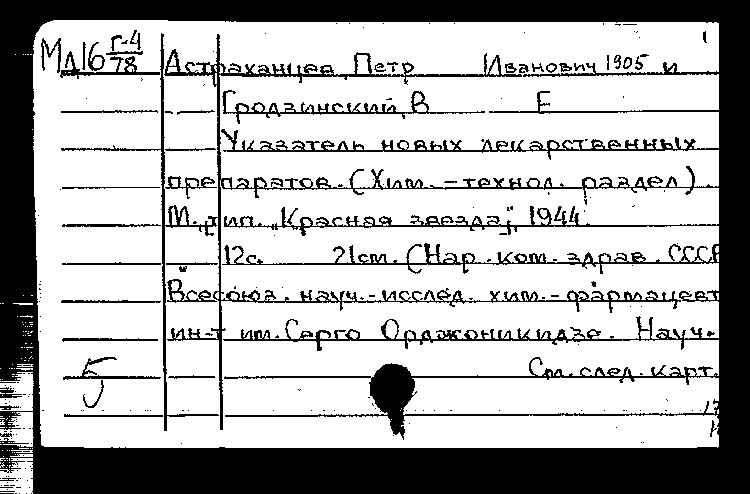 МД16 Г-4/78 Астраханцев, Петр Иванович 1905 и
Гродзинский, В Е
Указатель новых лекарственных
препаратов. (Хим. - технол. раздел).
М., тип. "Красная звезда", 1944.
12с. 21см. (Нар. ком. здрав. СССР
Всесоюз. науч.-исслед. хим.-фармацевт
ин-т им. Серго Орджоникидзе. Науч.
См. след. карт.
5